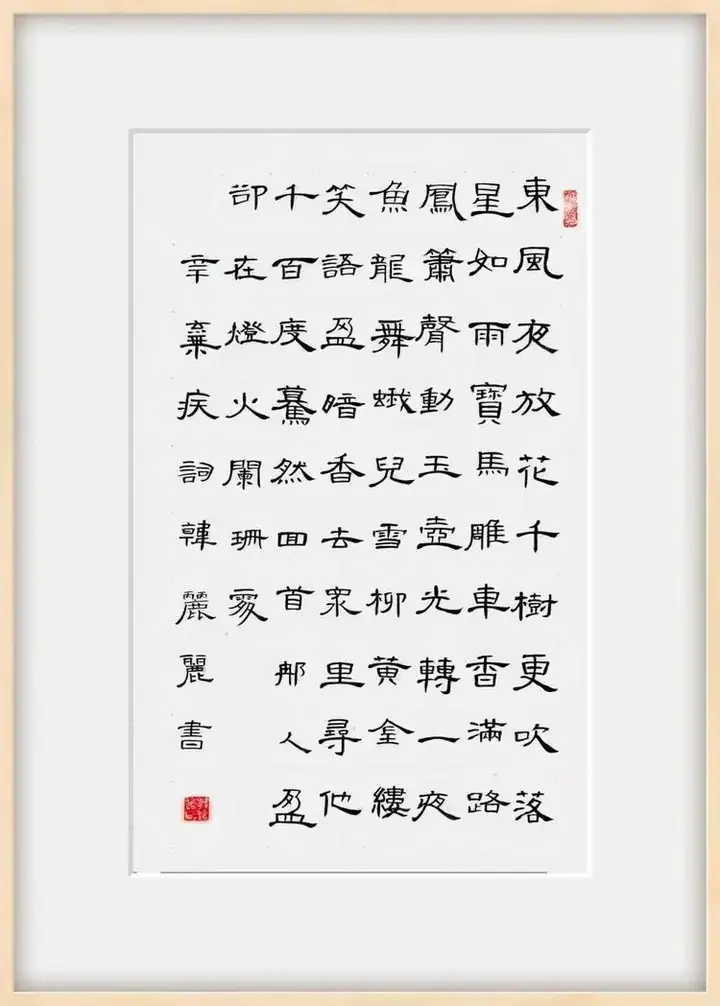 東風夜放花千樹更吹落
星如雨寶馬雕車香滿路
鳳簫聲動玉壺光轉一夜
魚龍舞蛾兒雪柳黃金縷
笑語盈暗香去眾里尋他
千百度驀然回首那人盈
卻在燈火闌珊處
辛棄疾詞韓麗麗書